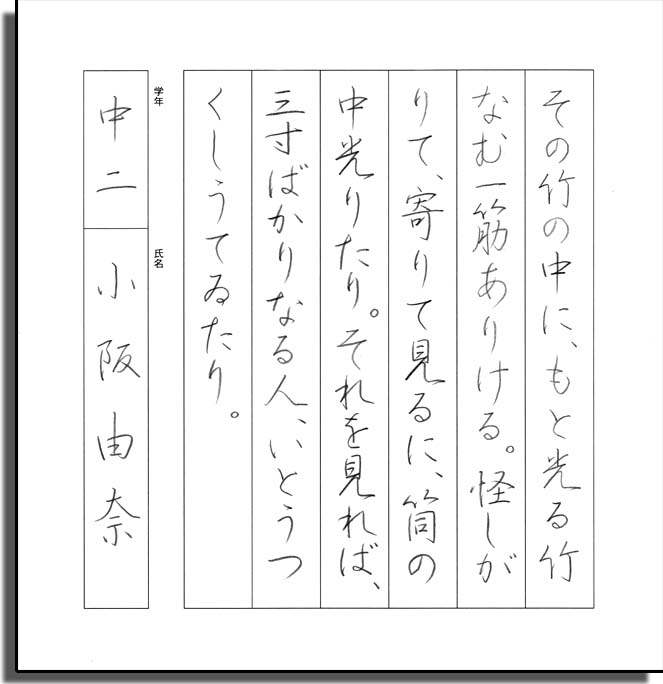 その竹の中に、もと光る竹
なむ一筋ありける。怪しが
りて、寄りて見るに、筒の
中光りたり。それを見れば、
三寸ばかりなる人、いとうつ
くしうてゐたり。
学年
中二
氏名
小阪由奈